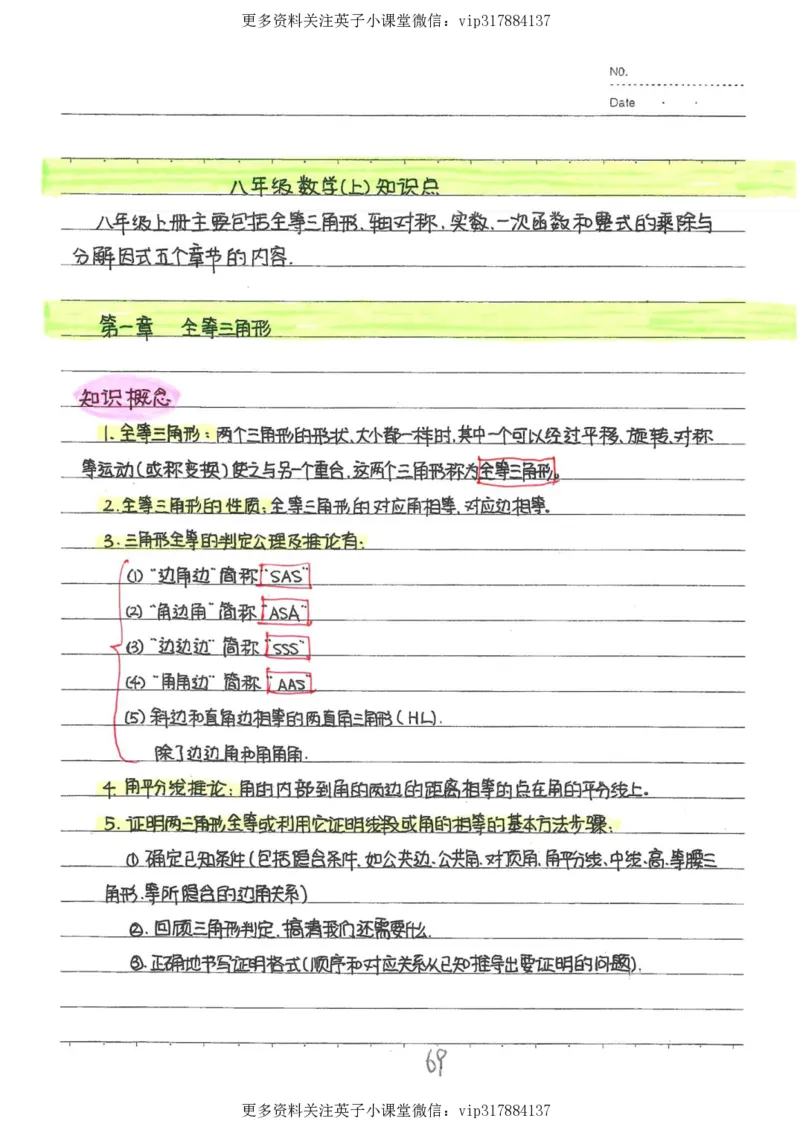 更多资料关注英子小课堂微信：vip317884137
NO.
Date
八年级数学(上)知识点
八年级上册主要包括全等三角形、轴对称、实数、一次函数和整式的乘除与
分解因式五个章节的内容.
第一章 全等三角形
知识概念
1.全等三角形：两个三角形的形状、大小都一样时,其中一个可以经过平移、旋转、对称
等运动(或称变换)使之与另一个重合,这两个三角形称为全等三角形。
2.全等三角形的性质：全等三角形的对应角相等、对应边相等。
3.三角形全等的判定公理及推论有：
(1)"边角边"简称"SAS"
(2)"角边角"简称"ASA"
(3)"边边边"简称"SSS"
(4)"角角边"简称"AAS"
(5)斜边和直角边相等的两直角三角形(HL).
除了边边角和角角角.
4.角平分线推论：角的内部到角的两边的距离相等的点在角的平分线上。
5.证明两三角形全等或利用它证明线段或角的相等的基本方法步骤：
①.确定已知条件(包括隐含条件,如公共边、公共角、对顶角、角平分线、中线、高、等腰三
角形、等所隐含的边角关系)
②.回顾三角形判定,搞清我们还需要什么.
③.正确地书写证明格式(顺序和对应关系从已知推导出要证明的问题).
69
更多资料关注英子小课堂微信：vip317884137